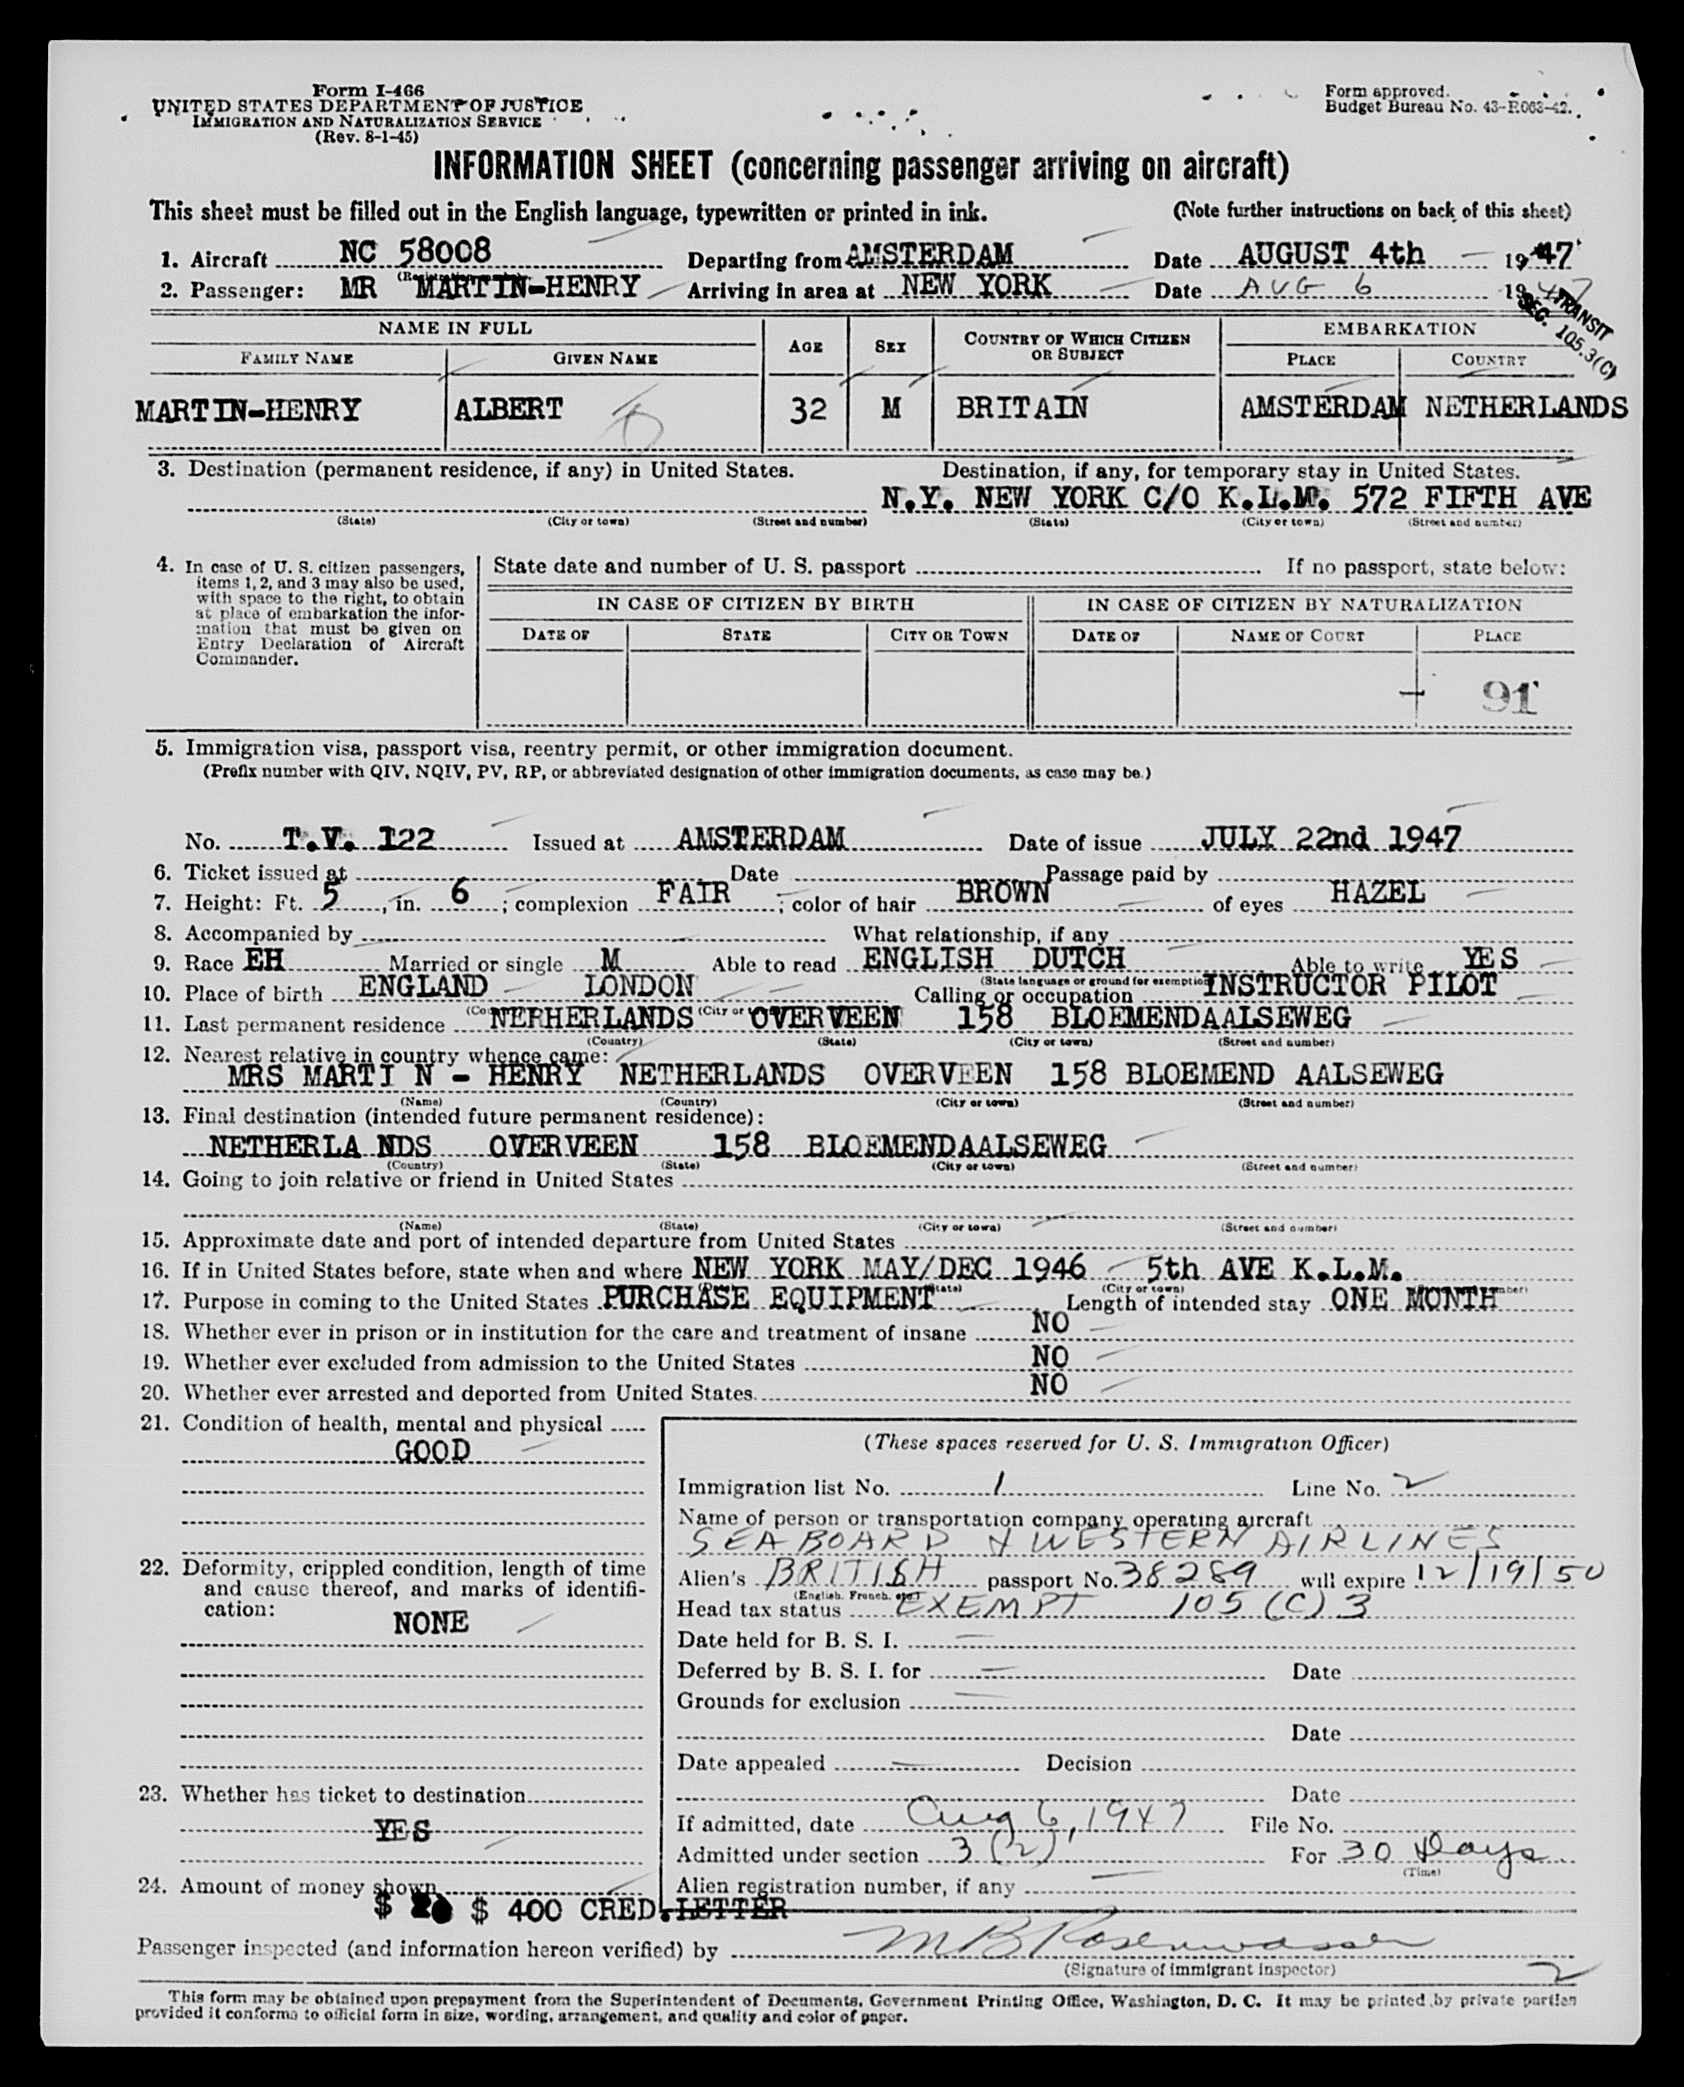 Form I-466
UNITED STATES DEPARTMENT OF JUSTICE
IMMIGRATION AND NATURALIZATION SERVICE
(Rev. 8-1-45)
Form approved.
Budget Bureau No. 43-R063-42.
INFORMATION SHEET (concerning passenger arriving on aircraft)
This sheet must be filled out in the English language, typewritten or printed in ink. (Note further instructions on back of this sheet)
1. Aircraft NC 58008 Departing from AMSTERDAM Date AUGUST 4th 1947
(Registration number)
2. Passenger: MR MARTIN-HENRY Arriving in area at NEW YORK Date AUG 6 1947
TRANSIT
SEC. 105.3(C)
NAME IN FULL AGE SEX COUNTRY OF WHICH CITIZEN OR SUBJECT EMBARKATION
FAMILY NAME GIVEN NAME PLACE COUNTRY
MARTIN-HENRY ALBERT 32 M BRITAIN AMSTERDAM NETHERLANDS
3. Destination (permanent residence, if any) in United States. Destination, if any, for temporary stay in United States.
N.Y. NEW YORK C/O K.L.M. 572 FIFTH AVE
(State) (City or town) (Street and number) (State) (City or town) (Street and number)
4. In case of U. S. citizen passengers, items 1, 2, and 3 may also be used, with space to the right, to obtain at place of embarkation the information that must be given on Entry Declaration of Aircraft Commander.
State date and number of U. S. passport If no passport, state below:
IN CASE OF CITIZEN BY BIRTH IN CASE OF CITIZEN BY NATURALIZATION
DATE OF STATE CITY OR TOWN DATE OF NAME OF COURT PLACE
91
5. Immigration visa, passport visa, reentry permit, or other immigration document.
(Prefix number with QIV, NQIV, PV, RP, or abbreviated designation of other immigration documents, as case may be.)
No. T.V. 122 Issued at AMSTERDAM Date of issue JULY 22nd 1947
6. Ticket issued at Date Passage paid by
7. Height: Ft. 5, in. 6; complexion FAIR; color of hair BROWN of eyes HAZEL
8. Accompanied by What relationship, if any
9. Race EH Married or single M Able to read ENGLISH DUTCH Able to write YES
(State language or ground for exemption)
10. Place of birth ENGLAND LONDON Calling or occupation INSTRUCTOR PILOT
11. Last permanent residence NEPHERLANDS OVERVEEN 158 BLOEMENDAALSEWEG
(Country) (State) (City or town) (Street and number)
12. Nearest relative in country whence came:
MRS MARTI N - HENRY NETHERLANDS OVERVEEN 158 BLOEMEND AALSEWEG
(Name) (Country) (City or town) (Street and number)
13. Final destination (intended future permanent residence):
NETHERLA NDS OVERVEEN 158 BLOEMENDAALSEWEG
(Country) (State) (City or town) (Street and number)
14. Going to join relative or friend in United States
(Name) (State) (City or town) (Street and number)
15. Approximate date and port of intended departure from United States
16. If in United States before, state when and where NEW YORK MAY/DEC 1946 5th AVE K.L.M.
(State) (City or town)
17. Purpose in coming to the United States PURCHASE EQUIPMENT Length of intended stay ONE MONTH
18. Whether ever in prison or in institution for the care and treatment of insane NO
19. Whether ever excluded from admission to the United States NO
20. Whether ever arrested and deported from United States. NO
21. Condition of health, mental and physical
GOOD
22. Deformity, crippled condition, length of time and cause thereof, and marks of identification:
NONE
23. Whether has ticket to destination
YES
24. Amount of money shown
$ $ 400 CRED.LETTER
(These spaces reserved for U. S. Immigration Officer)
Immigration list No. 1 Line No. 2
Name of person or transportation company operating aircraft
SEABOARD & WESTERN AIRLINES
Alien's BRITISH passport No. 38289 will expire 12/19/50
(English, French, etc.)
Head tax status EXEMPT 105 (C) 3
Date held for B. S. I. —
Deferred by B. S. I. for — Date
Grounds for exclusion —
Date
Date appealed — Decision
Date
If admitted, date Aug 6, 1947 File No.
Admitted under section 3 (2) For 30 Days
(Time)
Alien registration number, if any —
Passenger inspected (and information hereon verified) by M B Rosenwasser
(Signature of immigrant inspector)
2
This form may be obtained upon prepayment from the Superintendent of Documents, Government Printing Office, Washington, D. C. It may be printed by private parties
provided it conforms to official form in size, wording, arrangement, and quality and color of paper.